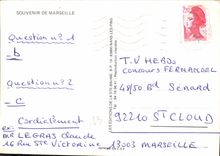 SOUVENIR DE MARSEILLE
Question n° 1
- D
Question n° 2
- C
Cordialement
ex:
MR LEGRAS Claude
16 Rue Ste Victorine
13003 MARSEILLE
T V HEBDO
Concours FERNANDEL
48/50 Bd Senard
92210 St CLOUD